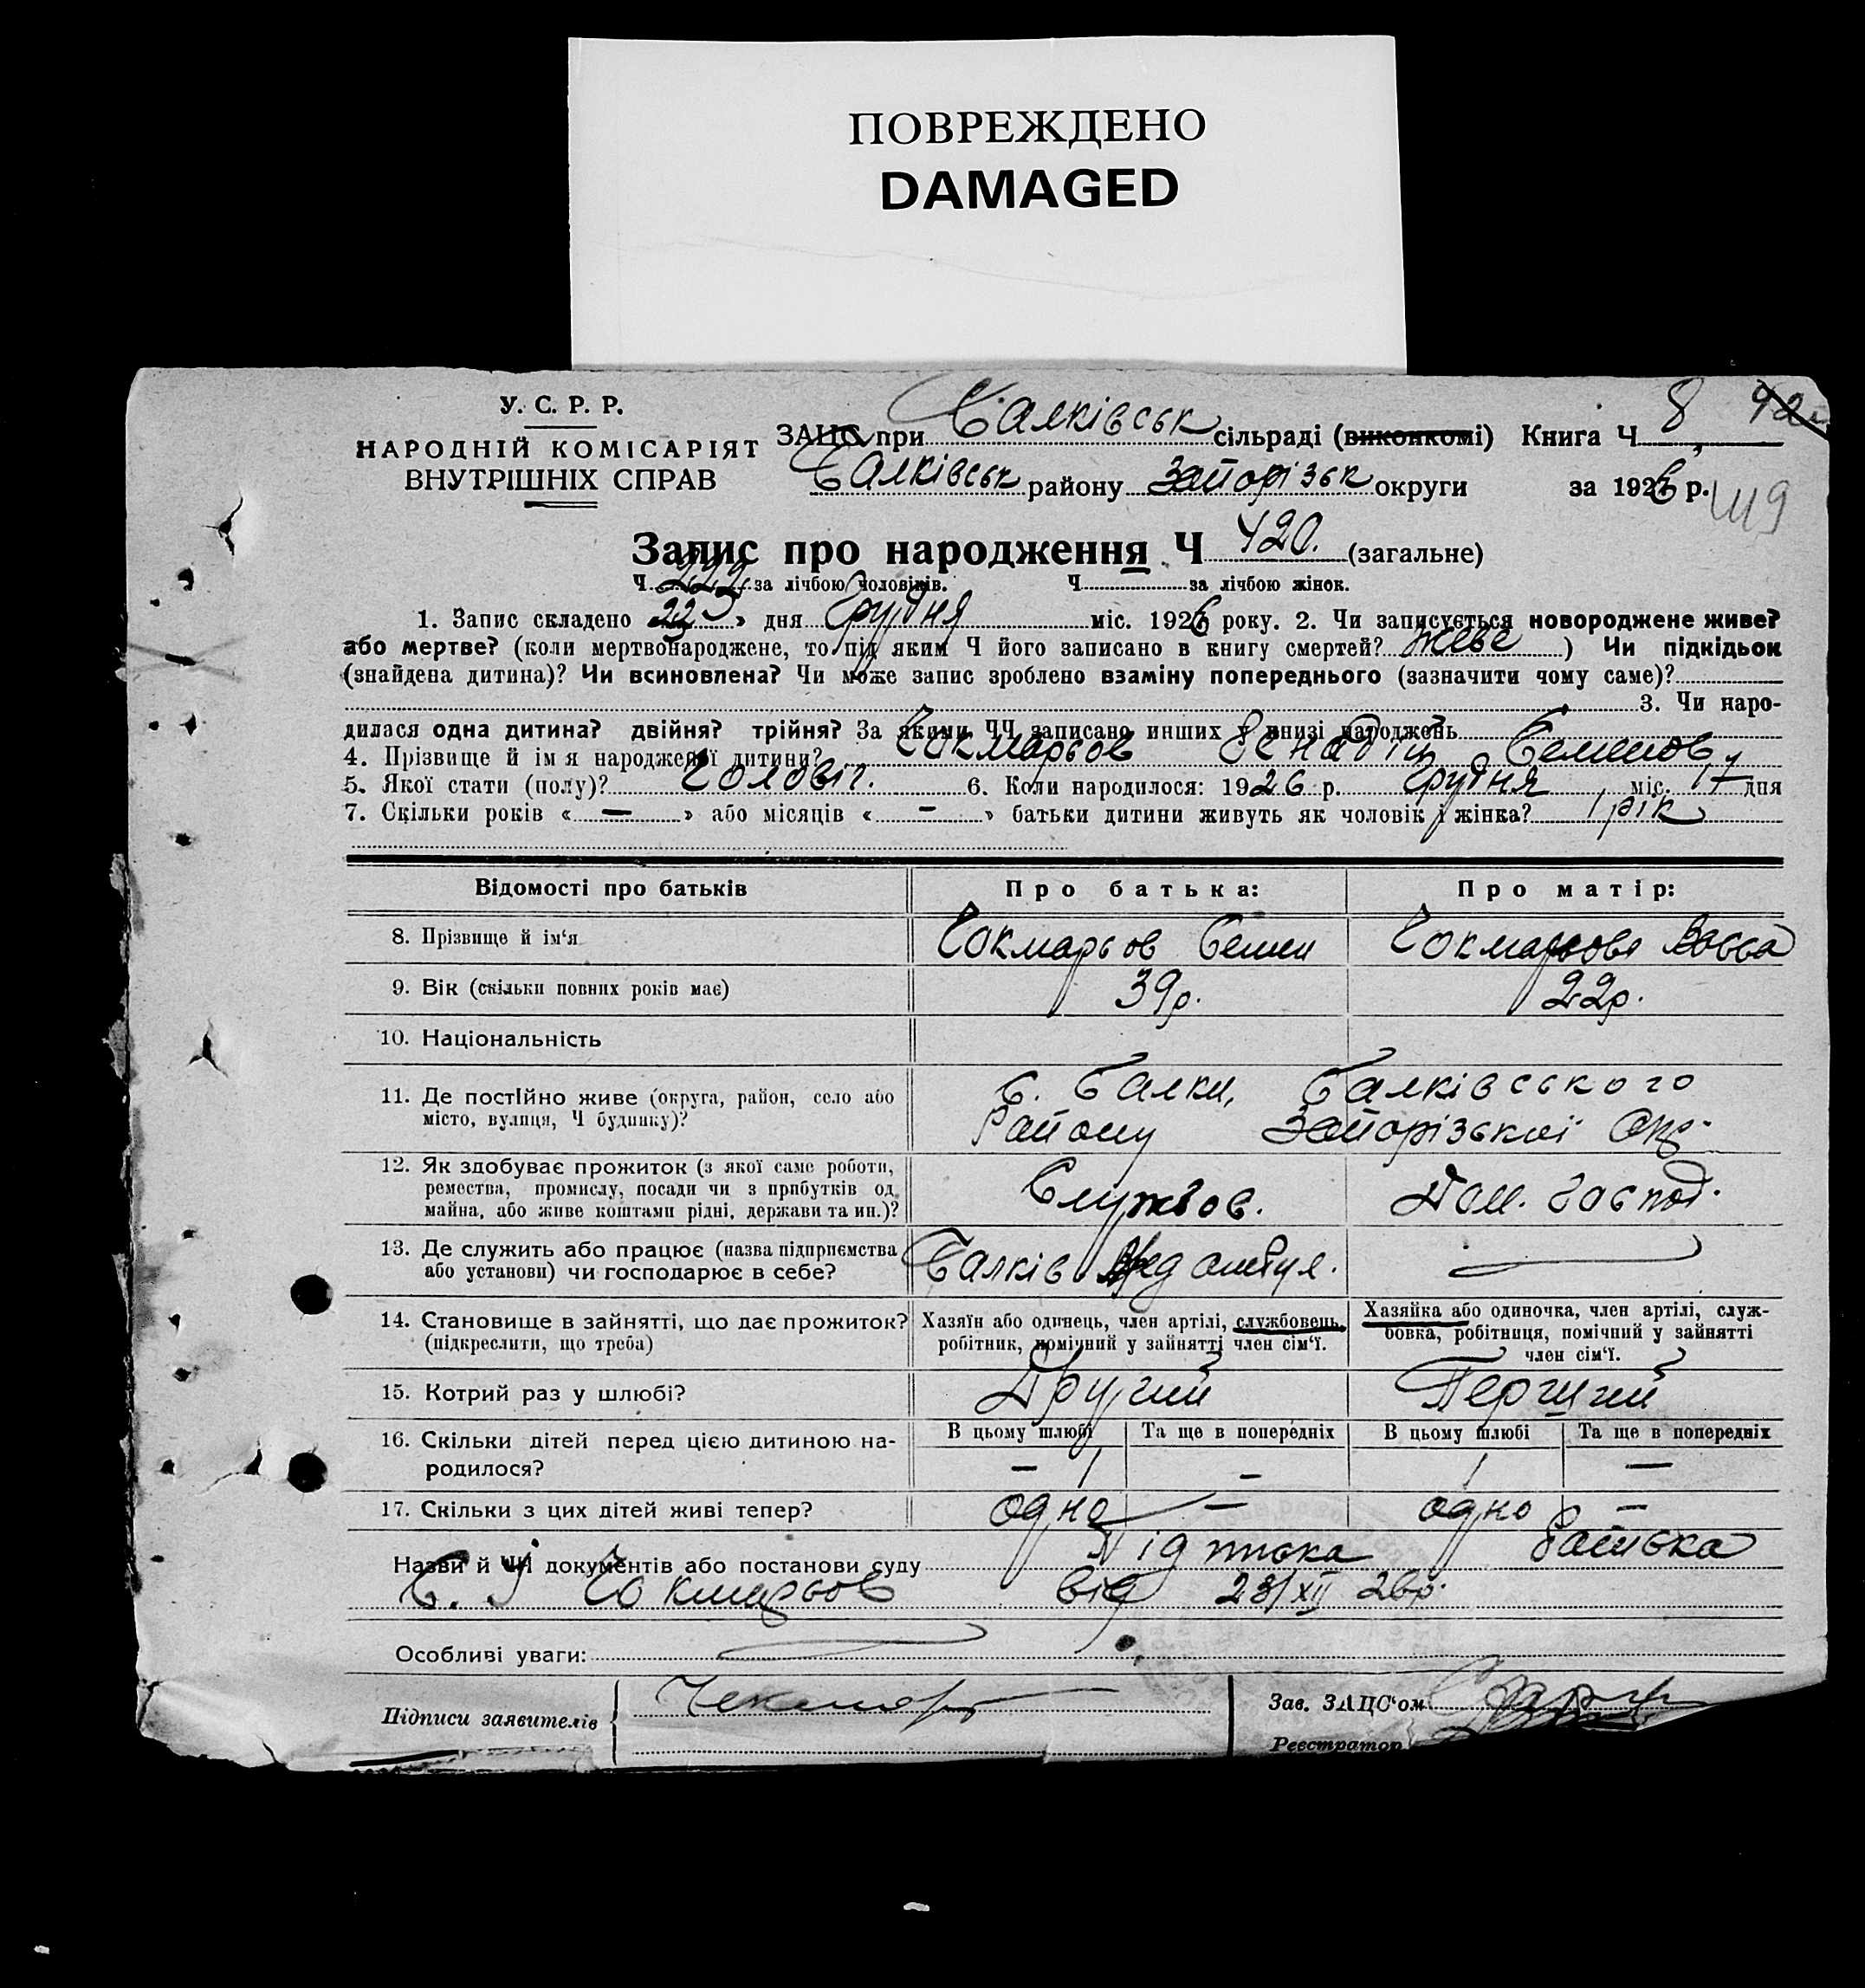 ПОВРЕЖДЕНО
DAMAGED
У. С. Р. Р.
НАРОДНІЙ КОМІСАРІЯТ
ВНУТРІШНІХ СПРАВ
ЗАЦС при Балківськ сільраді (виконкомі) Книга Ч 8
Балківськ району Запорізьк округи за 1926 р.
119
Запис про народження Ч 420. (загальне)
Ч 222 за лічбою чоловіків. Ч за лічбою жінок.
1. Запис складено « 23 » дня Грудня міс. 1926 року. 2. Чи записується новороджене живе?
або мертве? (коли мертвонароджене, то під яким Ч його записано в книгу смертей? живе ) Чи підкідьок
(знайдена дитина)? Чи всиновлена? Чи може запис зроблено взаміну попереднього (зазначити чому саме)?
3. Чи наро-
дилася одна дитина? двійня? трійня? За якими ЧЧ записано инших у книзі народжень
4. Прізвище й ім я народженої дитини? Чокмарьов Генадій Семенов
5. Якої стати (полу)? Чоловіч. 6. Коли народилося: 1926 р. Грудня міс. 17 дня
7. Скільки років « — » або місяців « - » батьки дитини живуть як чоловік і жінка? 1 рік
Відомості про батьків Про батька: Про матір:
8. Прізвище й ім'я Чокмарьов Семен Чокмарьова Васса
9. Вік (скільки повних років має) 39 р. 22 р.
10. Національність
11. Де постійно живе (округа, район, село або місто, вулиця, Ч будинку)?
С. Балки, Балківського
Району Запорізької Окр.
12. Як здобуває прожиток (з якої саме роботи,
ремества, промислу, посади чи з прибутків од
майна, або живе коштами рідні, держави та ин.)?
Службов. Дом. господ.
13. Де служить або працює (назва підприємства
або установи) чи господарює в себе?
Балків Мед амбул.
14. Становище в зайнятті, що дає прожиток?
(підкреслити, що треба)
Хазяїн або одинець, член артілі, службовець,
робітник, помічний у зайнятті член сім'ї.
Хазяйка або одиночка, член артілі, служ-
бовка, робітниця, помічний у зайнятті
член сім'ї.
15. Котрий раз у шлюбі? Другий Перший
16. Скільки дітей перед цією дитиною на-
родилося?
В цьому шлюбі Та ще в попередніх В цьому шлюбі Та ще в попередніх
— —
17. Скільки з цих дітей живі тепер? одно — одно —
Назви й ЧЧ документів або постанови суду Підписка батька
С. І Чокмарьов від 23/XII 26р.
Особливі уваги:
Підписи заявителів
Зав. ЗАЦС'ом
Реєстратор